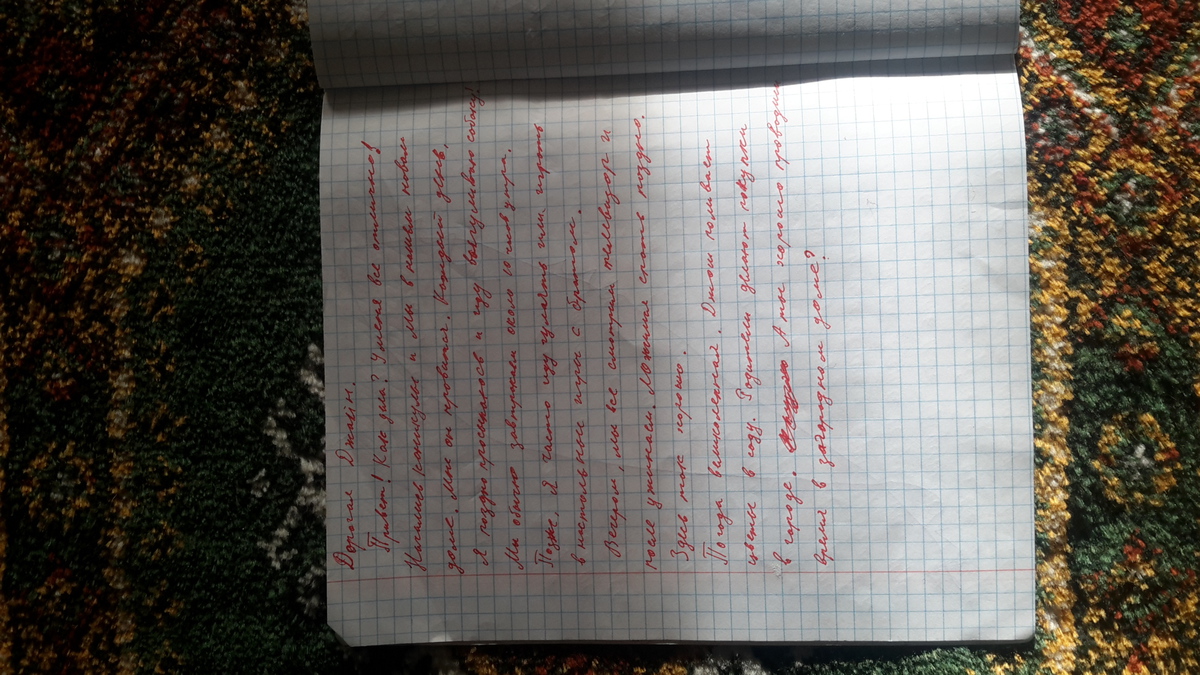 Дорогая Джейн.
Привет! Как дела? У меня все отлично!
Начались каникулы и мы в нашем новом
доме. Мне он нравится. Каждый день,
Я поздно просыпаюсь и иду выгуливаю собаку!
Мы обычно завтракаем около 10 часов утра.
Позже, я часто иду гулять или играть
в настольные игры с братом.
Вечером, мы все смотрим телевизор и
после ужинаем. Ложимся спать поздно.
Здесь так хорошо.
Погода великолепная. Джош поливает
цветы в саду. Родители делают покупки
в городе. А ты хорошо проводишь
время в загородном доме?